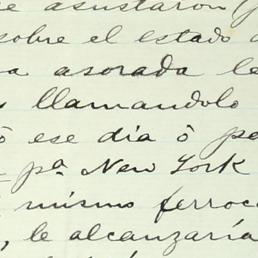 e asustaron
sobre el estado
a asorada le
llamandolo
ó ese dia ó
pª New York
mismo ferroc
, le alcanzaría